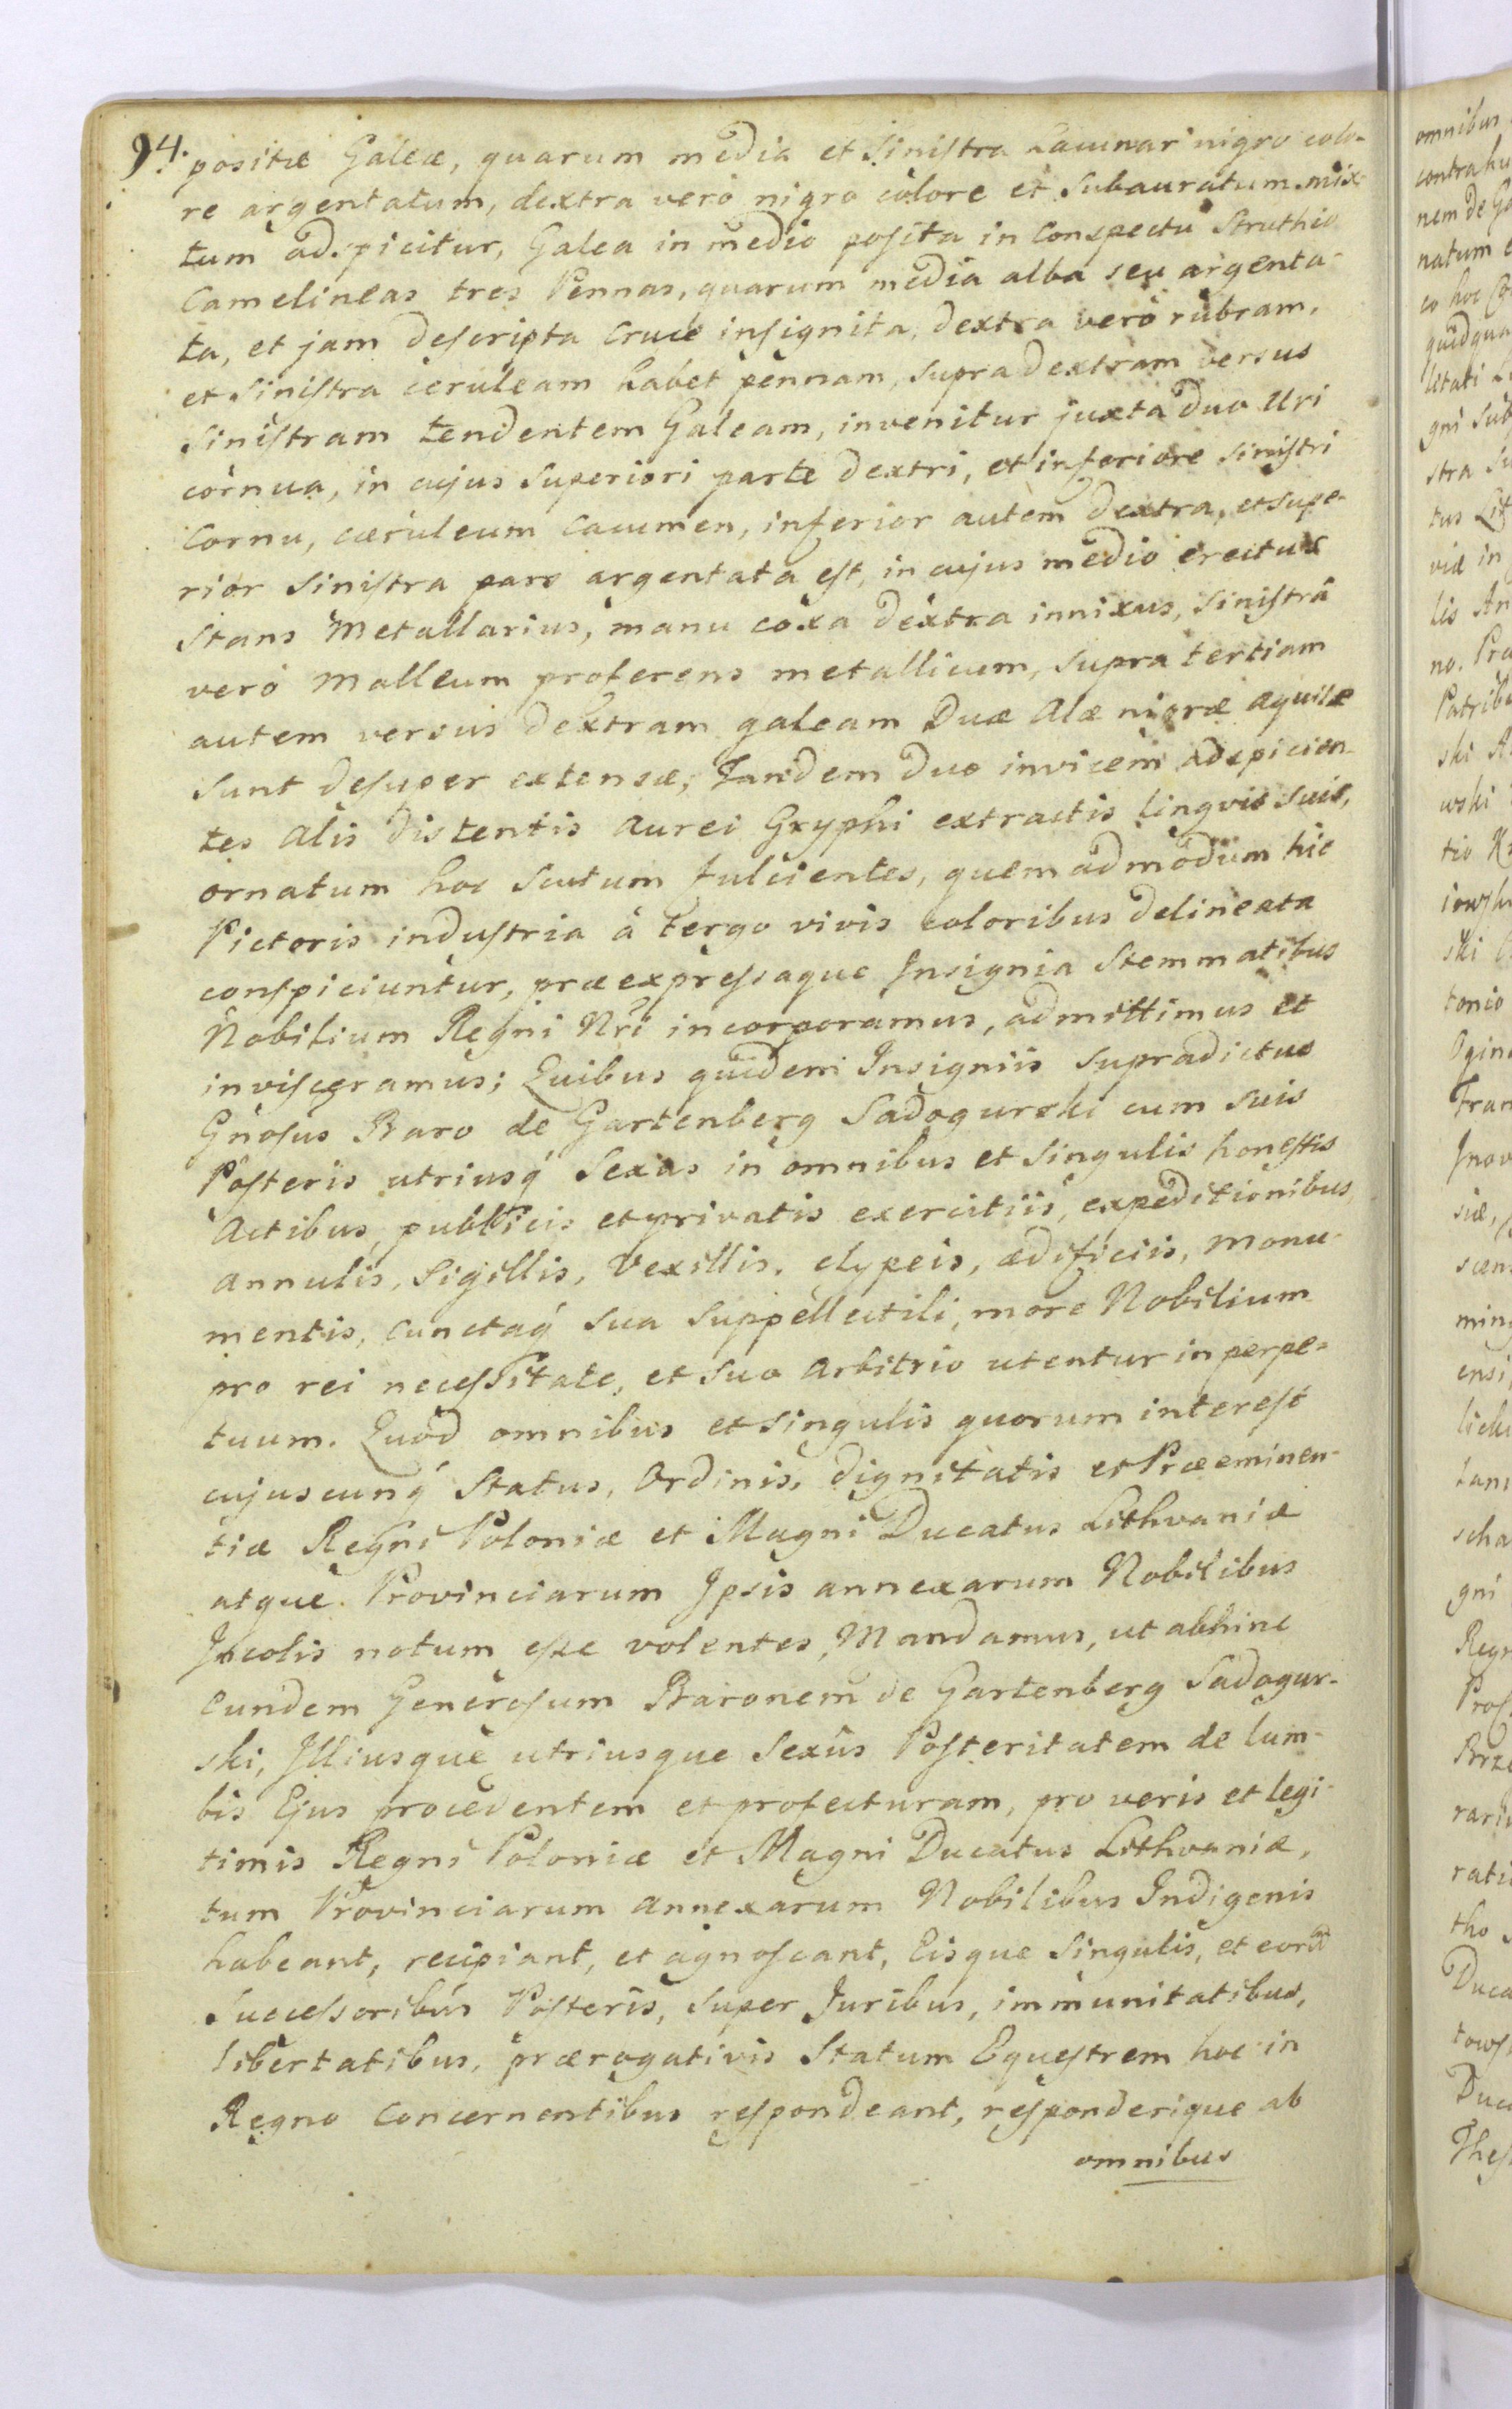 94.
positæ Galeæ, quarum media et Sinistra Lacunar nigro colo-
re argentatum, dextra verò nigro colore et Subauratum mix-
tum adspicitur, Galea in medio posita in Conspectu Struthio
Camelineas tres Pennas, quarum media alba seu argenta-
ta, et jam descripta Cruce insignita, dextra verò rubram,
et Sinistra ceruleam habet pennam, supra dextram versus
Sinistram tendentem Galeam, invenitur juxta duo Uri
cornua, in cujus Superiori parte dextri, et inferiore sinistri
Cornu, cæruleum Cacumen, inferior autem dextra, et supe-
rior Sinistra pars argentata est, in cujus medio erectus
Stans Metallarius, manu coxa dextra innixus, Sinistrâ
verò Malleum proferens metallicum, supra tertiam
autem versus dextram galeam Duæ Alæ nigræ Aquilæ
Sunt desuper extensæ; Tandem duo invicem adspicien-
tes Alis distentis Aurei Gryphi extractis linguis suis,
ornatum hoc Scutum fulcientes, quemadmodum hic
Pictoris industria à tergo vivis coloribus delineata
conspiciuntur, præexpressaque Insignia Stemmatibus
Nobilium Regni Nri incorporamus, admittimus et
invisceramus; Quibus quidem Insigniis Supradictus
Gnosus Baro de Gartenberg Sadogurski cum suis
Posteris utriusq́ Sexus in omnibus et singulis honestis
Actibus, publicis et privatis exercitiis, expeditionibus
Annulis, Sigillis, Vexillis, clypeis, ædificiis, Monu-
mentis, cunctaq́ sua Suppellectili, more Nobilium
pro rei necessitate, et suo Arbitrio utentur in perpe-
tuum. Quod omnibus et singulis quorum interest
cujuscunq́ Status, Ordinis, dignitatis et Præeminen-
tiæ Regni Poloniæ et Magni Ducatus Lithvaniæ
atque Provinciarum Ipsis annexarum Nobilibus
Incolis notum esse volentes, Mandamus, ut abhinc
Eundem Generosum Baronem de Gartenberg Sadogur-
ski, Illiusque utriusque Sexûs Posteritatem de lum-
bis Ejus procedentem et profecturam, pro veris et legi-
timis Regni Poloniæ et Magni Ducatus Lithvaniæ,
tum Provinciarum Annexarum Nobilibus Indigenis
habeant, recipiant, et agnoscant, Eisque Singulis, et eorū
Successoribus Posteris, super Juribus, immunitatibus,
libertatibus, prærogativis Statum Equestrem hoc in
Regno Concernentibus respondeant, responderique ab
omnibus